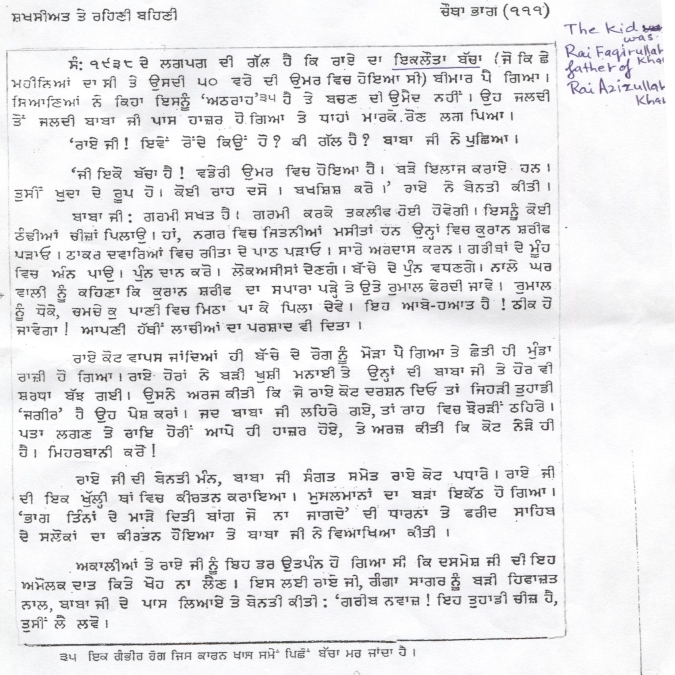 ਸ਼ਖਸੀਅਤ ਤੇ ਰਹਿਣੀ ਬਹਿਣੀ
ਚੌਥਾ ਭਾਗ (੧੧੧)
ਸੰ: ੧੯੩੮ ਦੇ ਲਗਪਗ ਦੀ ਗੱਲ ਹੈ ਕਿ ਰਾਏ ਦਾ ਇਕਲੌਤਾ ਬੱਚਾ (ਜੋ ਕਿ ਛੇ
ਮਹੀਨਿਆਂ ਦਾ ਸੀ ਤੇ ਉਸਦੀ ੫੦ ਵਰੇ ਦੀ ਉਮਰ ਵਿਚ ਹੋਇਆ ਸੀ) ਬੀਮਾਰ ਪੈ ਗਿਆ।
ਸਿਆਣਿਆਂ ਨੇ ਕਿਹਾ ਇਸਨੂੰ 'ਅਠਰਾਹ'੩੫ ਹੈ ਤੇ ਬਚਣ ਦੀ ਉਮੈਦ ਨਹੀਂ। ਉਹ ਜਲਦੀ
ਤੋਂ ਜਲਦੀ ਬਾਬਾ ਜੀ ਪਾਸ ਹਾਜ਼ਰ ਹੋ ਗਿਆ ਤੇ ਧਾਹਾਂ ਮਾਰਕੇ ਰੋਣ ਲਗ ਪਿਆ।
'ਰਾਏ ਜੀ! ਇਵੇਂ ਰੋਂਦੇ ਕਿਉਂ ਹੋ? ਕੀ ਗੱਲ ਹੈ? ਬਾਬਾ ਜੀ ਨੇ ਪੁਛਿਆ।
'ਜੀ ਇਕੋ ਬੱਚਾ ਹੈ! ਵਡੇਰੀ ਉਮਰ ਵਿਚ ਹੋਇਆ ਹੈ। ਬੜੇ ਇਲਾਜ ਕਰਾਏ ਹਨ।
ਤੁਸੀਂ ਖੁਦਾ ਦੇ ਰੂਪ ਹੋ। ਕੋਈ ਰਾਹ ਦਸੋ। ਬਖਸ਼ਿਸ਼ ਕਰੋ।' ਰਾਏ ਨੇ ਬੇਨਤੀ ਕੀਤੀ।
ਬਾਬਾ ਜੀ: ਗਰਮੀ ਸਖਤ ਹੈ। ਗਰਮੀ ਕਰਕੇ ਤਕਲੀਫ ਹੋਈ ਹੋਵੇਗੀ। ਇਸਨੂੰ ਕੋਈ
ਠੰਢੀਆਂ ਚੀਜ਼ਾਂ ਪਿਲਾਉ। ਹਾਂ, ਨਗਰ ਵਿਚ ਜਿਤਨੀਆਂ ਮਸੀਤਾਂ ਹਨ ਉਨ੍ਹਾਂ ਵਿਚ ਕੁਰਾਨ ਸ਼ਰੀਫ
ਪੜਾਓ। ਠਾਕਰ ਦਵਾਰਿਆਂ ਵਿਚ ਗੀਤਾ ਦੇ ਪਾਠ ਪੜਾਓ। ਸਾਰੇ ਅਰਦਾਸ ਕਰਨ। ਗਰੀਬਾਂ ਦੇ ਮੂੰਹ
ਵਿਚ ਅੰਨ ਪਾਉ। ਪੁੰਨ ਦਾਨ ਕਰੋ। ਲੋਕ ਅਸੀਸਾਂ ਦੇਣਗੇ। ਬੱਚੇ ਦੇ ਪੁੰਨ ਵਧਣਗੇ। ਨਾਲੇ ਘਰ
ਵਾਲੀ ਨੂੰ ਕਹਿਣਾ ਕਿ ਕੁਰਾਨ ਸ਼ਰੀਫ ਦਾ ਸਪਾਰਾ ਪੜ੍ਹੇ ਤੇ ਉਤੇ ਰੁਮਾਲ ਫੇਰਦੀ ਜਾਵੇ। ਰੁਮਾਲ
ਨੂੰ ਧੋਕੇ, ਚਮਚੇ ਕੁ ਪਾਣੀ ਵਿਚ ਮਿਠਾ ਪਾ ਕੇ ਪਿਲਾ ਦੇਵੇ। ਇਹ ਆਬੇ-ਹਆਤ ਹੈ! ਠੀਕ ਹੋ
ਜਾਵੇਗਾ! ਆਪਣੀ ਹੱਥੀਂ ਲਾਚੀਆਂ ਦਾ ਪਰਸ਼ਾਦ ਵੀ ਦਿਤਾ।
ਰਾਏ ਕੋਟ ਵਾਪਸ ਜਾਂਦਿਆਂ ਹੀ ਬੱਚੇ ਦੇ ਰੋਗ ਨੂੰ ਮੋੜਾ ਪੈ ਗਿਆ ਤੇ ਛੇਤੀ ਹੀ ਮੁੰਡਾ
ਰਾਜ਼ੀ ਹੋ ਗਿਆ। ਰਾਏ ਹੋਰਾਂ ਨੇ ਬੜੀ ਖੁਸ਼ੀ ਮਨਾਈ ਤੇ ਉਨ੍ਹਾਂ ਦੀ ਬਾਬਾ ਜੀ ਤੇ ਹੋਰ ਵੀ
ਸ਼ਰਧਾ ਬੱਝ ਗਈ। ਉਸਨੇ ਅਰਜ ਕੀਤੀ ਕਿ ਜੇ ਰਾਏ ਕੋਟ ਦਰਸ਼ਨ ਦਿਓ ਤਾਂ ਜਿਹੜੀ ਤੁਹਾਡੀ
'ਜਗੀਰ' ਹੈ ਉਹ ਪੇਸ਼ ਕਰਾਂ। ਜਦ ਬਾਬਾ ਜੀ ਲਹਿਰੇ ਗਏ, ਤਾਂ ਰਾਹ ਵਿਚ ਝੋਰੜੀਂ ਠਹਿਰੇ।
ਪਤਾ ਲਗਣ ਤੇ ਰਾਇ ਹੋਰੀਂ ਆਪੇ ਹੀ ਹਾਜ਼ਰ ਹੋਏ, ਤੇ ਅਰਜ਼ ਕੀਤੀ ਕਿ ਕੋਟ ਨੇੜੇ ਹੀ
ਹੈ। ਮਿਹਰਬਾਨੀ ਕਰੋ!
ਰਾਏ ਜੀ ਦੀ ਬੇਨਤੀ ਮੰਨ, ਬਾਬਾ ਜੀ ਸੰਗਤ ਸਮੇਤ ਰਾਏ ਕੋਟ ਪਧਾਰੇ। ਰਾਏ ਜੀ
ਦੀ ਇਕ ਖੁੱਲ੍ਹੀ ਥਾਂ ਵਿਚ ਕੀਰਤਨ ਕਰਾਇਆ। ਮੁਸਲਮਾਨਾਂ ਦਾ ਬੜਾ ਇਕੱਠ ਹੋ ਗਿਆ।
'ਭਾਗ ਤਿੰਨਾਂ ਦੇ ਮਾੜੇ ਦਿਤੀ ਬਾਂਗ ਜੋ ਨਾ ਜਾਗਦੇ' ਦੀ ਧਾਰਨਾ ਤੇ ਫਰੀਦ ਸਾਹਿਬ
ਦੇ ਸਲੋਕਾਂ ਦਾ ਕੀਰਤਨ ਹੋਇਆ ਤੇ ਬਾਬਾ ਜੀ ਨੇ ਵਿਆਖਿਆ ਕੀਤੀ।
ਅਕਾਲੀਆਂ ਤੇ ਰਾਏ ਜੀ ਨੂੰ ਇਹ ਡਰ ਉਤਪੰਨ ਹੋ ਗਿਆ ਸੀ ਕਿ ਦਸਮੇਸ਼ ਜੀ ਦੀ ਇਹ
ਅਮੋਲਕ ਦਾਤ ਕਿਤੇ ਖੋਹ ਨਾ ਲੈਣ। ਇਸ ਲਈ ਰਾਏ ਜੀ, ਗੰਗਾ ਸਾਗਰ ਨੂੰ ਬੜੀ ਹਿਵਾਜ਼ਤ
ਨਾਲ, ਬਾਬਾ ਜੀ ਦੇ ਪਾਸ ਲਿਆਏ ਤੇ ਬੇਨਤੀ ਕੀਤੀ: 'ਗਰੀਬ ਨਵਾਜ਼! ਇਹ ਤੁਹਾਡੀ ਚੀਜ਼ ਹੈ,
ਤੁਸੀਂ ਲੈ ਲਵੋ।
੩੫ ਇਕ ਗੰਭੀਰ ਰੋਗ ਜਿਸ ਕਾਰਨ ਖਾਸ ਸਮੇਂ ਪਿਛੋਂ ਬੱਚਾ ਮਰ ਜਾਂਦਾ ਹੈ।
The Kid
was
Rai Faqirullah
Khan
father of
Rai Azizullah
Khan